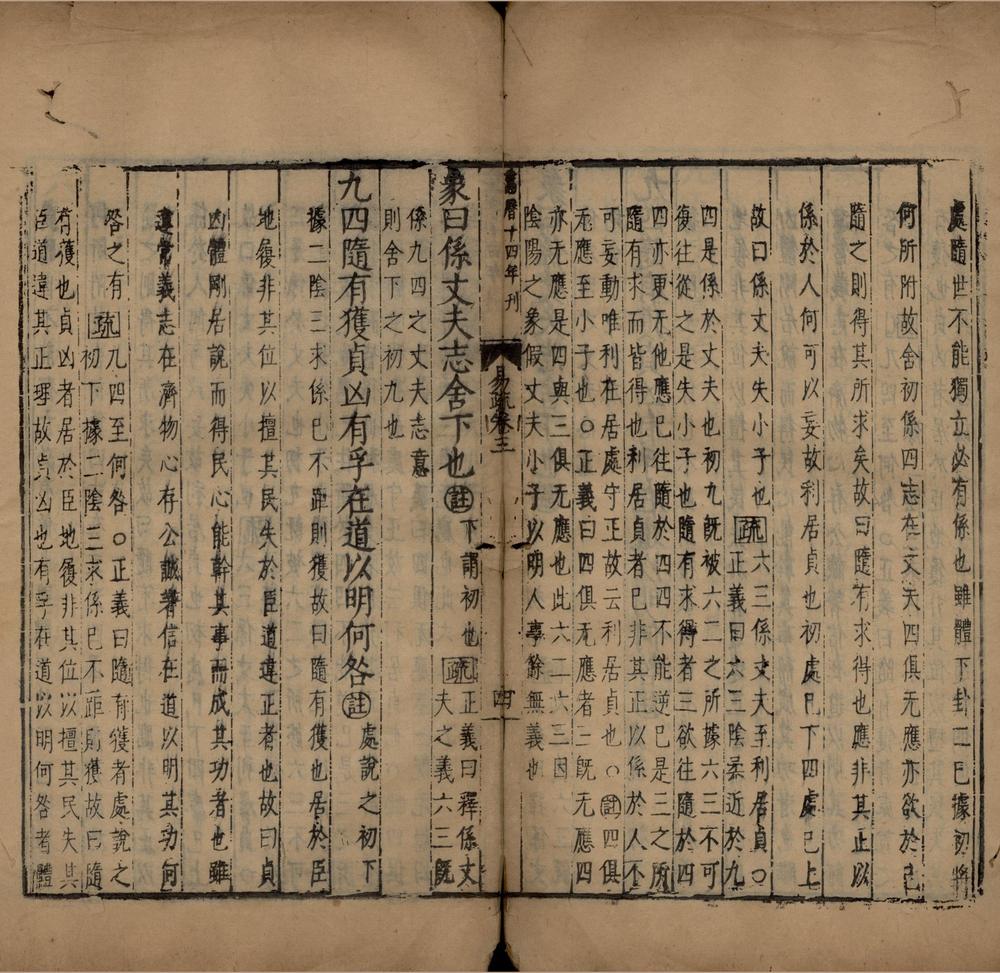 處隨世不能獨立必有係也雖體下卦二已據初將
何所附故舍初係四志在丈夫四俱无應亦欲於己
隨之則得其所求矣故曰隨有求得也應非其正以
係於人何可以妄故利居貞也初處已下四處已上
故曰係丈夫失小子也
疏
六三係丈夫至利居貞○
正義曰六三陰柔近於九
四是係於丈夫也初九既被六二之所據六三不可
復往從之是失小子也隨有求得者三欲往隨於四
四亦更无他應已往隨於四四不能逆已是三之所
隨有求而皆得也利居貞者已非其正以係於人不
可妄動唯利在居處守正故云利居貞也○註四俱
无應至小子也○正義曰四俱无應者三既无應四
亦无應是四與三俱无應也此六二六三因
陰陽之象假丈夫小子以明人事餘無義也
萬曆十四年刊
易疏卷三
四
象曰係丈夫志舍下也
註
下謂初也
疏
正義曰釋係丈
夫之義六三既
係九四之丈夫志意
則舍下之初九也
九四隨有獲貞凶有孚在道以明何咎
註
處說之初下
據二陰三求係已不距則獲故曰隨有獲也居於臣
地履非其位以擅其民失於臣道違正者也故曰貞
凶體剛居說而得民心能幹其事而成其功者也雖
違常義志在濟物心存公誠著信在道以明其功何
咎之有
疏
九四至何咎○正義曰隨有獲者處說之
初下據二陰三求係已不距則獲故曰隨
有獲也貞凶者居於臣地履非其位以擅其民失其
臣道違其正理故貞凶也有孚在道以明何咎者體